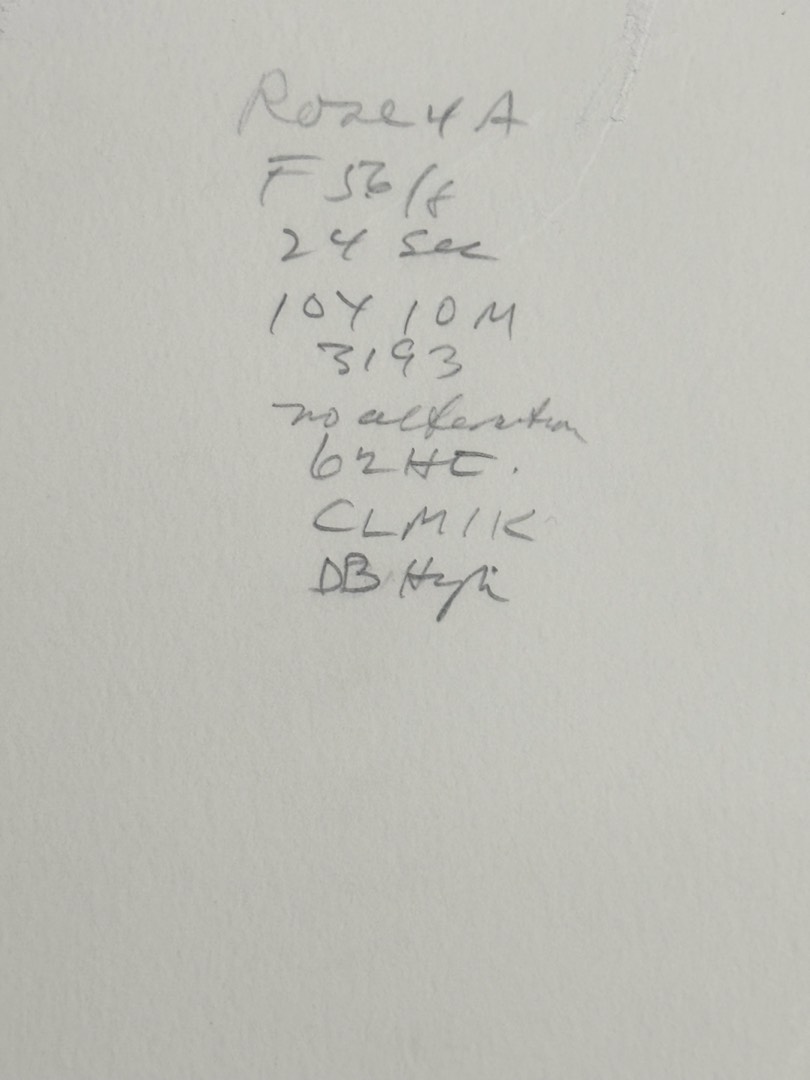 Rose 4 A
F 5.6/8
24 sec
10Y 10M
3193
no alteration
62HE.
CLM1K
DB